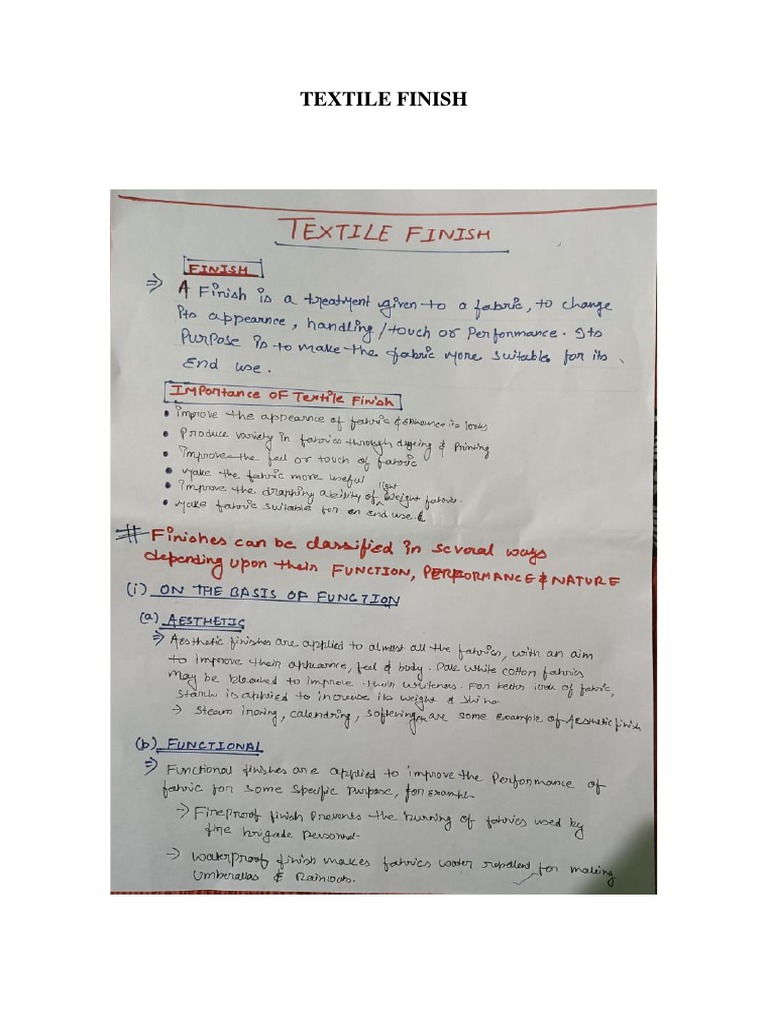 TEXTILE FINISH
TEXTILE FINISH
FINISH
⇒ A Finish is a treatment given to a fabric, to change
its appearnce, handling/touch or Performance. Its
Purpose is to make the fabric more suitable for its
End use.
Importance of Textile Finish
• improve the appearnce of fabric & enhance its looks
• Produce variety in fabrics through dyeing & Printing
• improve the feel or touch of fabric
• Make the fabric more useful
• improve the draping ability of light weight fabric.
• Make fabric suitable for an end use.
# Finishes can be classified in several ways
depending upon their FUNCTION, PERFORMANCE & NATURE
(i) ON THE BASIS OF FUNCTION
(a) AESTHETIC
⇒ Aesthetic finishes are applied to almost all the fabrics, with an aim
to improve their appearnce, feel & body. Pale white cotton fabrics
may be bleached to improve their whiteness. For better look of fabric,
starch is applied to increase its weight & shine.
→ Steam ironing, calendring, softening are some example of Aesthetic finish
(b) FUNCTIONAL
⇒ Functional finishes are applied to improve the Performance of
fabric for some specific purpose, for example-
→ Fireproof finish prevents the burning of fabrics used by
fire brigade personnel.
→ Waterproof finish makes fabrics water repellent for making
Umberallas & Raincoats.